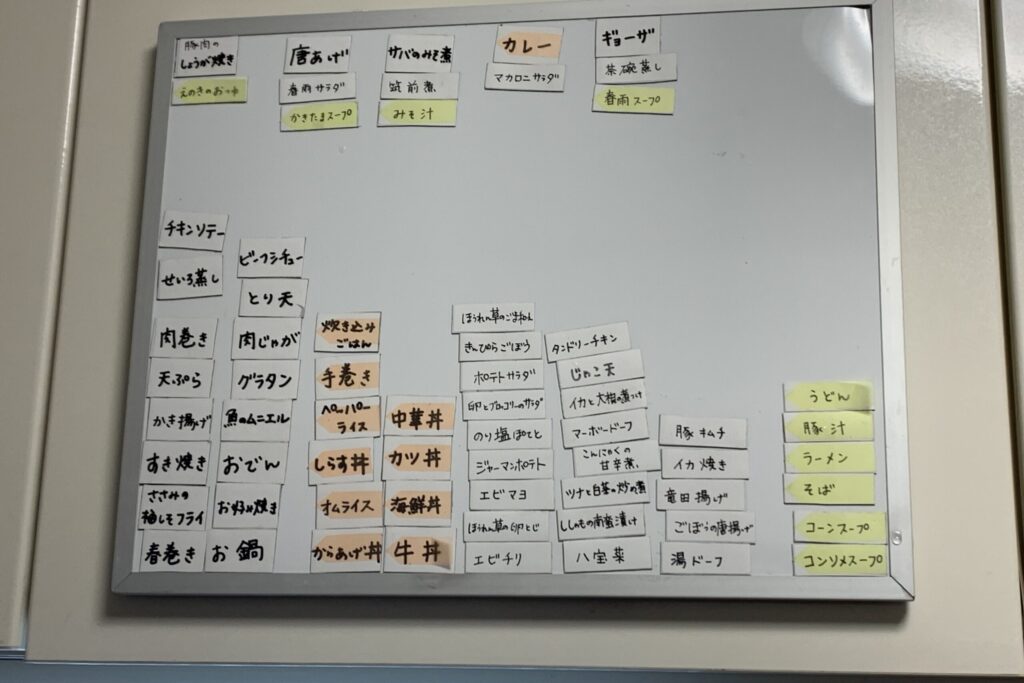 豚肉の
しょうが焼き
えのきのおつゆ
唐あげ
春雨サラダ
かきたまスープ
サバのみそ煮
筑前煮
みそ汁
カレー
マカロニサラダ
ギョーザ
茶碗蒸し
春雨スープ
チキンソテー
せいろ蒸し
肉巻き
天ぷら
かき揚げ
すき焼き
ささみの
梅しそフライ
春巻き
ビーフシチュー
とり天
肉じゃが
グラタン
魚のムニエル
おでん
お好み焼き
お鍋
炊き込み
ごはん
手巻き
ペッパー
ライス
しらす丼
オムライス
からあげ丼
中華丼
カツ丼
海鮮丼
牛丼
ほうれん草のごま和え
きんぴらごぼう
ポテトサラダ
卵とブロッコリーのサラダ
のり塩ぽてと
ジャーマンポテト
エビマヨ
ほうれん草の卵とじ
エビチリ
タンドリーチキン
じゃこ天
イカと大根の煮つけ
マーボードーフ
こんにゃくの
甘辛煮
ツナと白菜の炒め煮
ししゃもの南蛮漬け
八宝菜
豚キムチ
イカ焼き
竜田揚げ
ごぼうの唐揚げ
湯ドーフ
うどん
豚汁
ラーメン
そば
コーンスープ
コンソメスープ